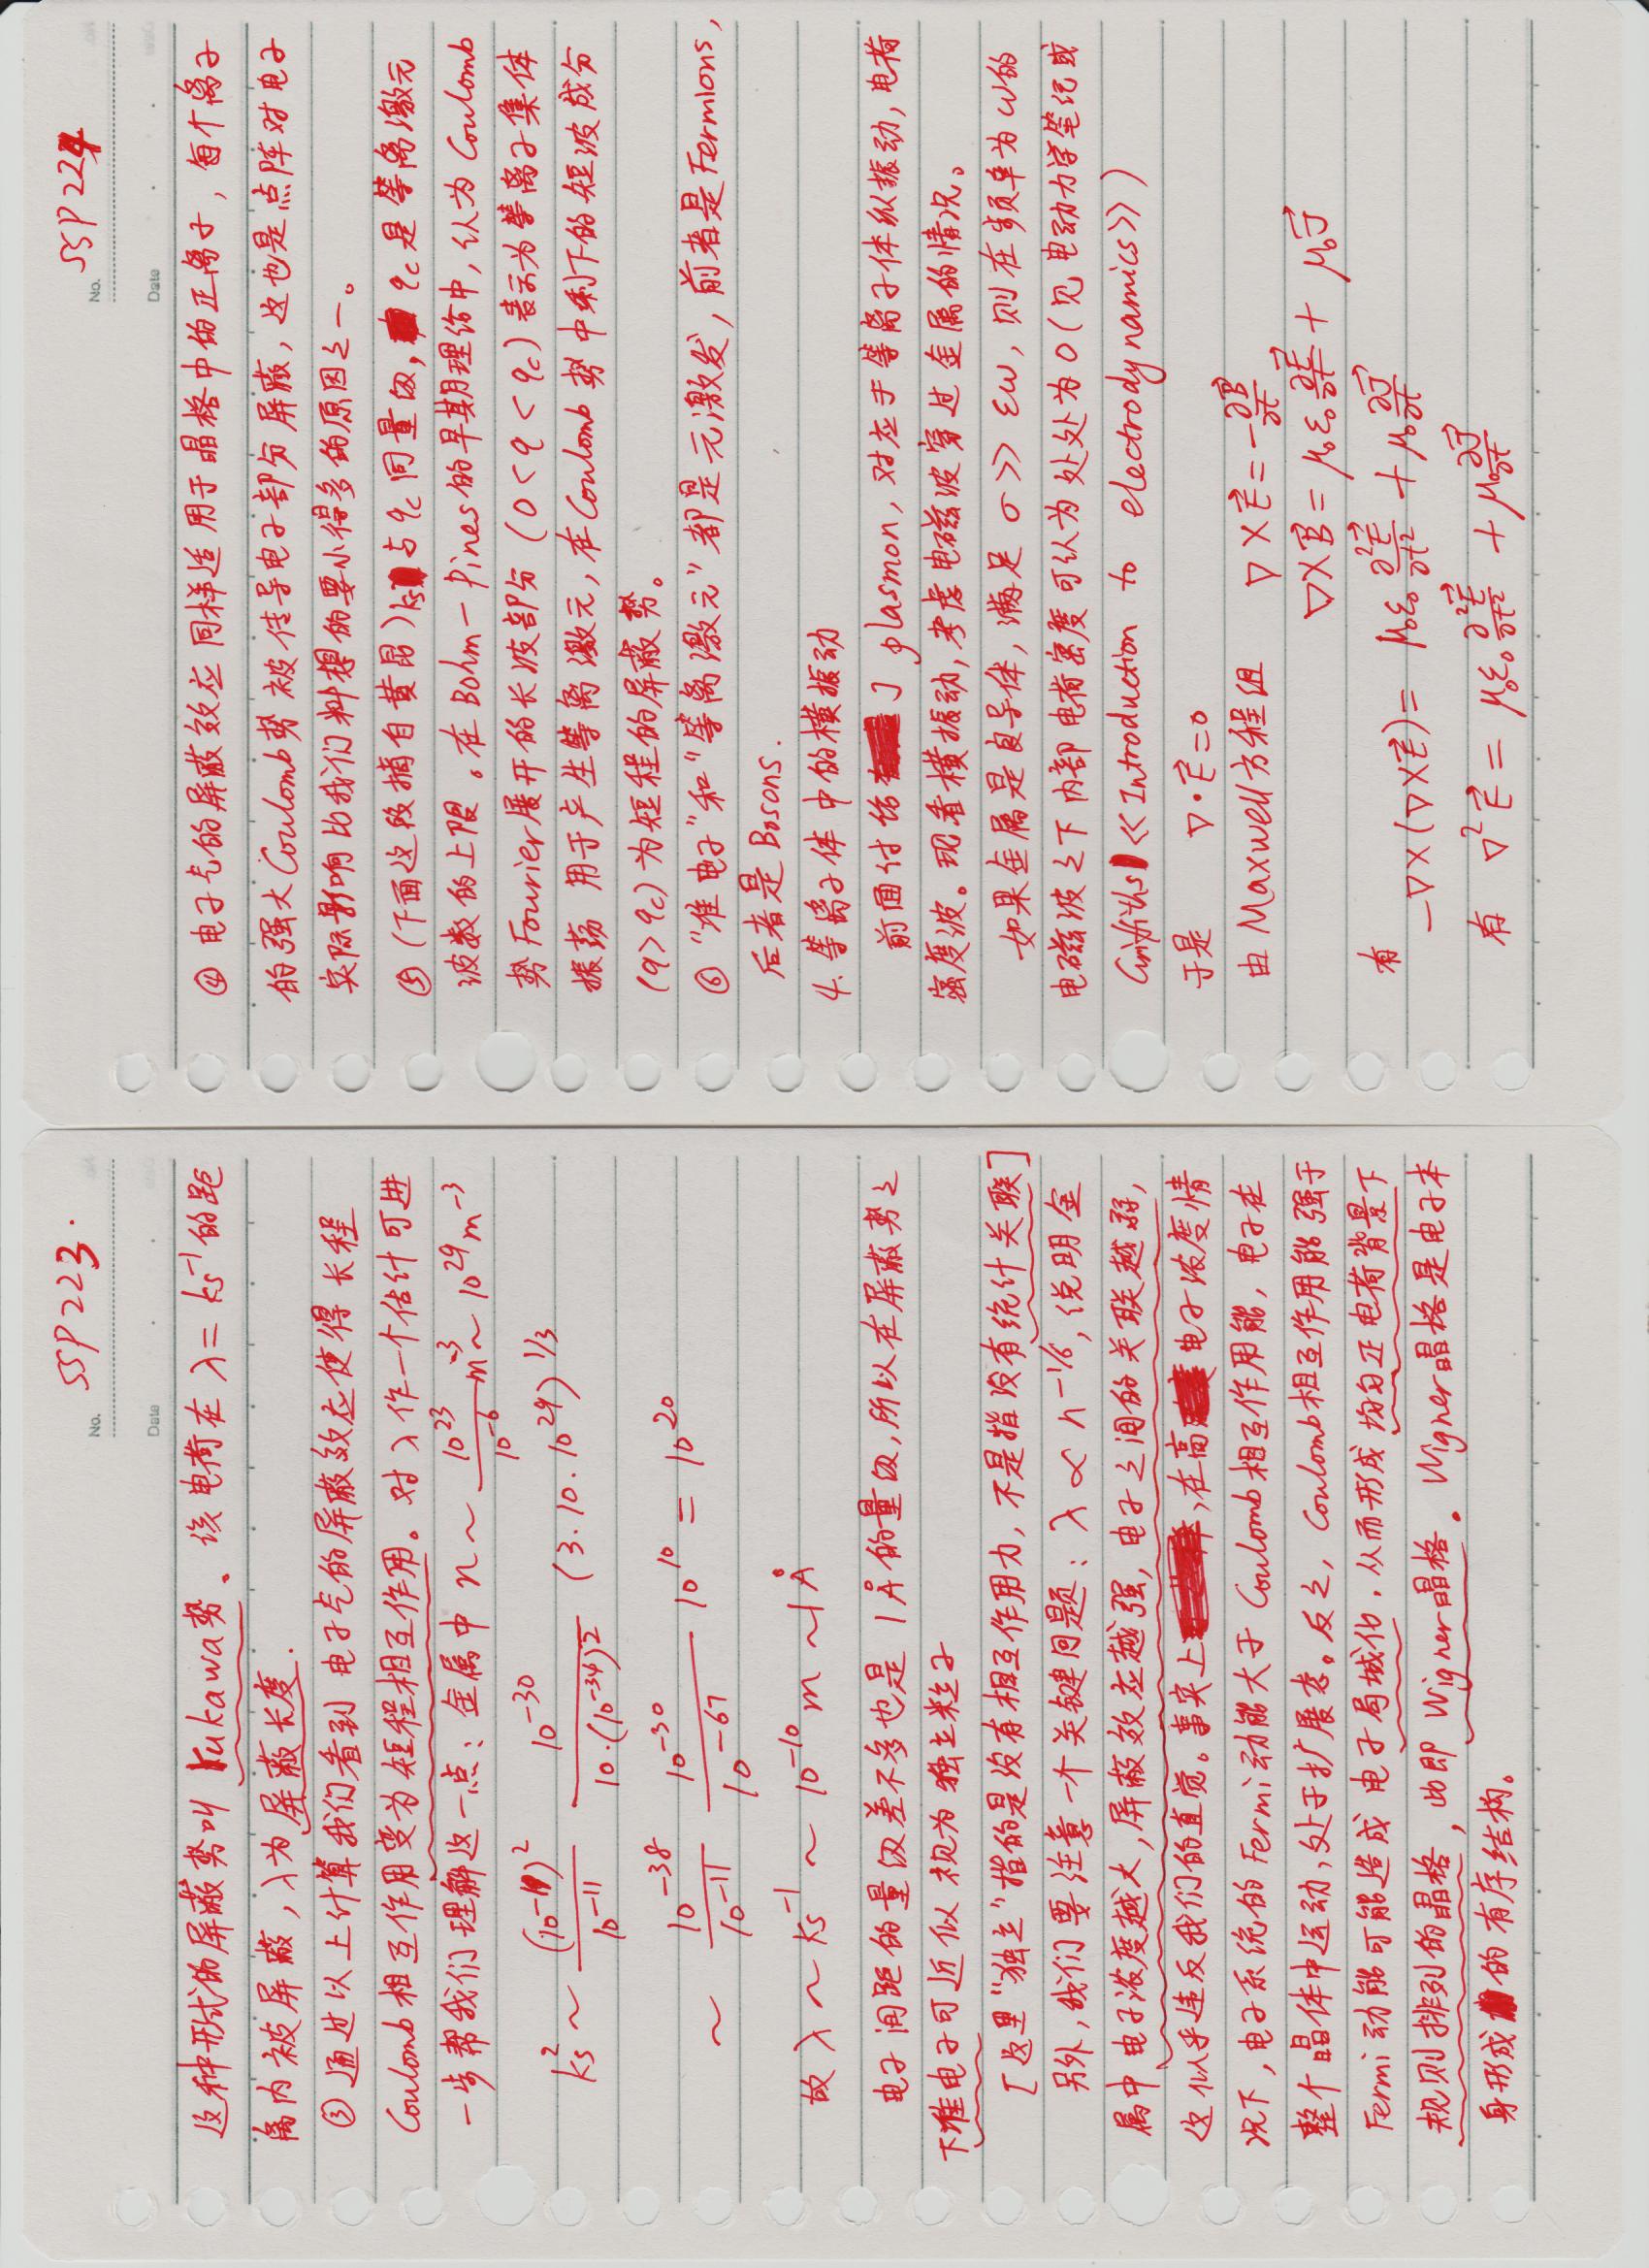 No. SSP223.
Date
这种形式的屏蔽势叫 Yukawa势。该电荷在 λ = ks⁻¹ 的距
离内被屏蔽，λ为屏蔽长度.
③ 通过以上计算我们看到 电子气的屏蔽效应使得 长程
Coulomb相互作用变为短程相互作用。对λ作一个估计可进
一步帮我们理解这一点：金属中 n ~ 10²³/10⁻⁶ m⁻³ ~ 10²⁹ m⁻³
ks² ~ (10⁻¹⁹)²/10⁻¹¹ 10⁻³⁰/10·(10⁻³⁴)² (3·10·10²⁹)^1/3
~ 10⁻³⁸/10⁻¹¹ 10⁻³⁰/10⁻⁶⁷ 10¹⁰ = 10²⁰
故 λ ~ ks⁻¹ ~ 10⁻¹⁰ m ~ 1 Å
电子间距的量级差不多也是 1 Å的量级,所以在屏蔽势之
下准电子可近似 视为 独立粒子
[这里“独立”指的是没有相互作用力, 不是指没有统计关联]
另外, 我们要注意一个关键问题: λ ∝ n^-1/6, 说明金
属中电子浓度越大, 屏蔽效应越强, 电子之间的关联越弱,
这似乎违反我们的直觉。事实上, 在高电子浓度情
况下, 电子系统的 Fermi动能大于 Coulomb相互作用能, 电子在
整个晶体中运动, 处于扩展态。反之, Coulomb相互作用能强于
Fermi动能可能造成 电子局域化. 从而形成 均匀正电荷背景下
规则排列的晶格, 此即 Wigner晶格。Wigner晶格是电子本
身形成的有序结构。
No. SSP224
Date
④ 电子气的屏蔽效应同样适用于晶格中的正离子, 每个离子
的强大Coulomb势被传导电子部分屏蔽, 这也是点阵对电子
实际影响比我们料想的要小得多的原因之一。
⑤ (下面这段摘自黄昆) ks与qc同量级, qc是等离激元
波数的上限。在Bohm-Pines的早期理论中, 认为 Coulomb
势Fourier展开的长波部分 (0 < q < qc) 表示为等离子集体
振荡 用于产生等离激元, 在Coulomb势中剩下的短波成分
(q > qc) 为短程的屏蔽势。
⑥ “准电子”和“等离激元”都是元激发, 前者是Fermions,
后者是 Bosons.
4. 等离子体中的横振动
前面讨论了 plasmon, 对应于等离子体纵振动, 电荷
密度波。现看横振动, 考虑电磁波穿过金属的情况。
如果金属是良导体, 满足 σ >> εω, 则在频率为ω的
电磁波之下内部电荷密度可认为处处为0 (见电动力学笔记或
Griffiths <<Introduction to electrodynamics>>)
于是 ∇·E⃗ = 0
由Maxwell方程组 ∇×E⃗ = -∂B⃗/∂t
∇×B⃗ = μ₀ε₀ ∂E⃗/∂t + μ₀J⃗
有 -∇×(∇×E⃗) = μ₀ε₀ ∂²E⃗/∂t² + μ₀ ∂J⃗/∂t
有 ∇²E⃗ = μ₀ε₀ ∂²E⃗/∂t² + μ₀ ∂J⃗/∂t